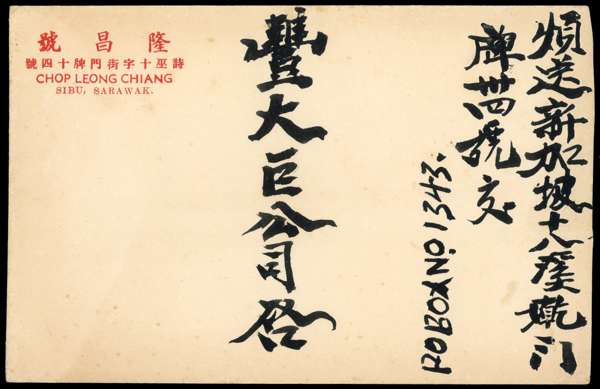 隆昌號
詩巫十字街門牌十四號
CHOP LEONG CHIANG
SIBU, SARAWAK.
煩送新加坡十八溪墘門
牌卅四號交
POBOX NO. 1343.
豐大巨公司啓